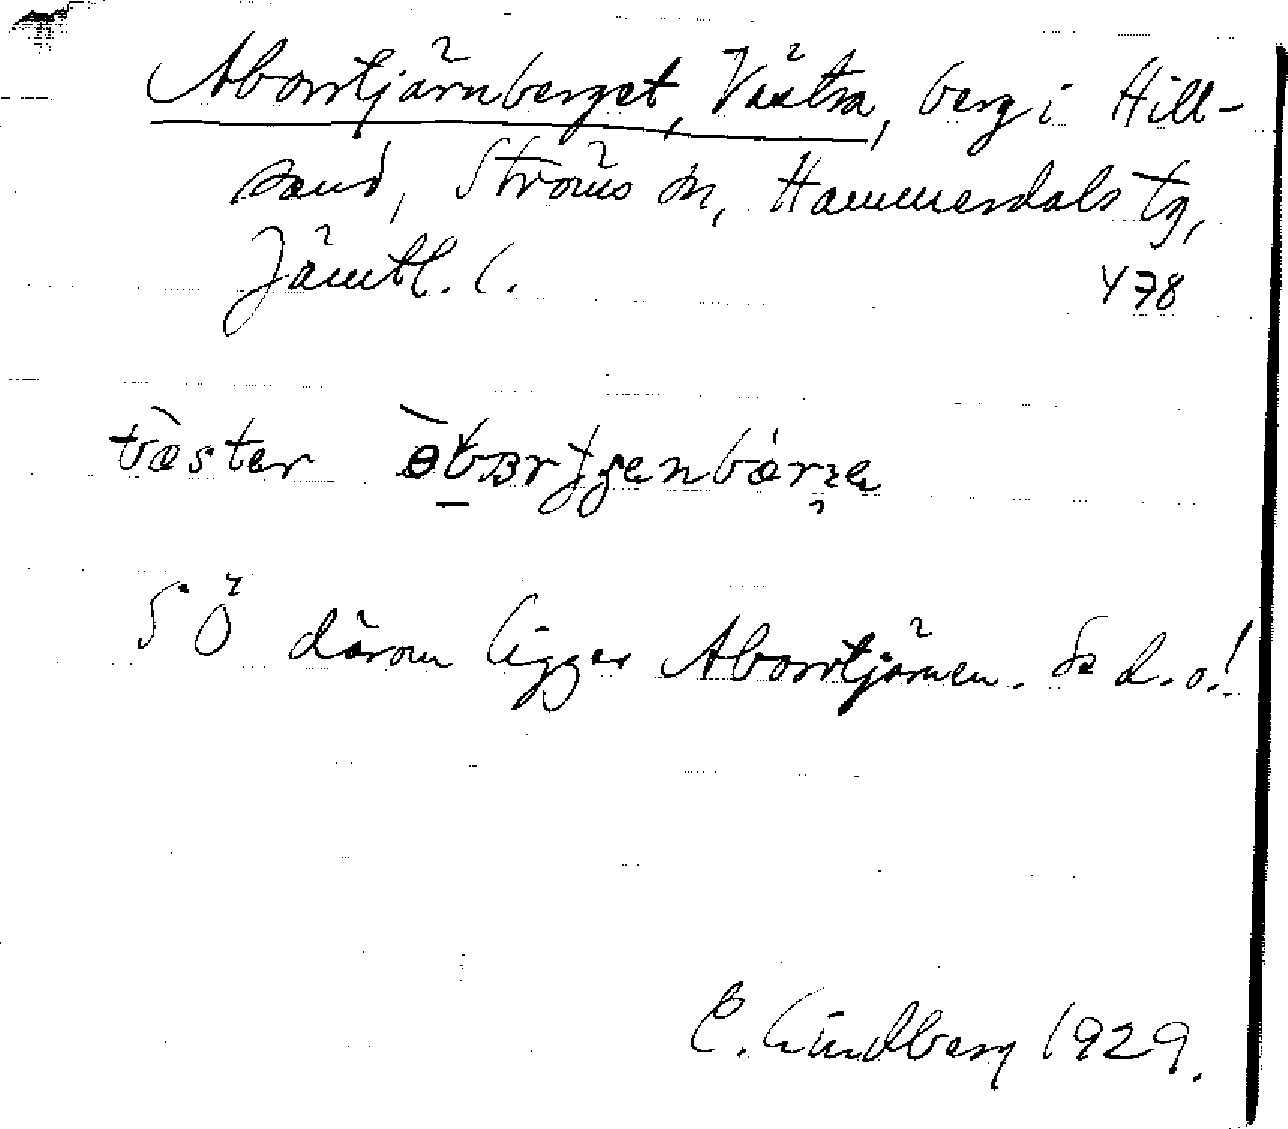 Aborrtjärnberget, Västra, berg i Hill-
sand, Ströms sn, Hammerdals tg,
Jämtl. l.
478
SÖ därom ligger Aborrtjärnen. Se d. o.!
E. Lindberg 1929.